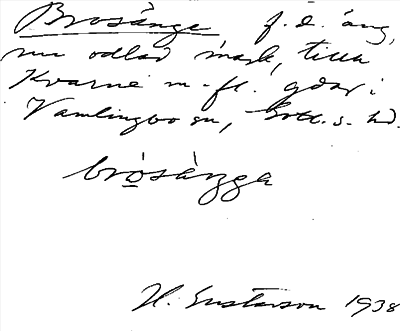 Brosänge f.d. äng,
nu odlad mark, tillh
Kvarne m. fl. gdar i
Vamlingbo sn, Gotl. s. hd.
bròsàngga
H. Gustavson 1938